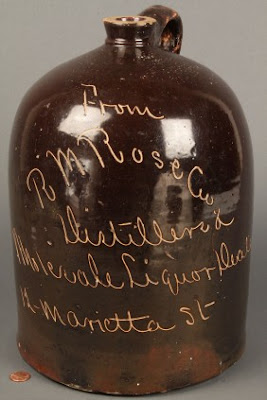 From
R M Rose Co
Distillers &
Wholesale Liquor Deal
Marietta St